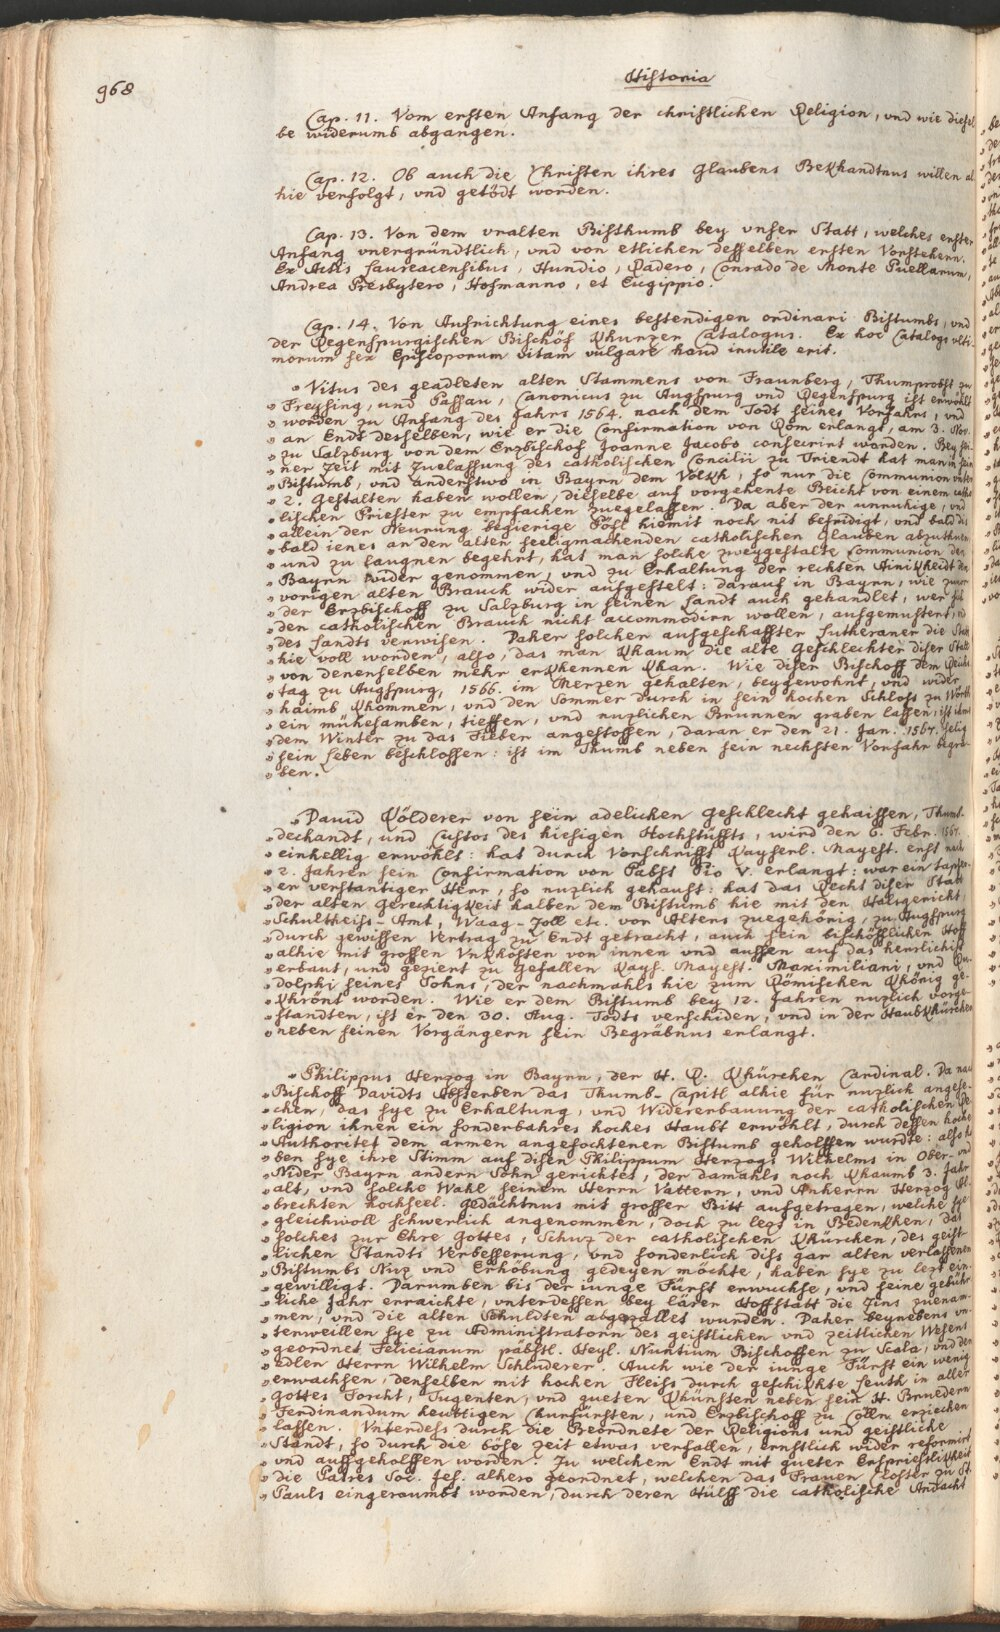 968
Historia
Cap. 11. Vom ersten Anfang der christlichen Religion, vnd wie diesel-
be widerumb abgangen.
Cap. 12. Ob auch die Christen ihres Glaubens Bekhandtnus willen al-
hie verfolgt, vnd getödt worden.
Cap. 13. Von dem vralten Bisthumb bey vnser Statt, welches erster
Anfang vnergründtlich, vnd von etlichen desselben ersten Vorstehern.
Ex Actis Laureacensibus, Hundio, Radero, Conrado de Monte Puellarum,
Andrea Presbytero, Hofmanno, et Eugippio.
Cap. 14. Von Aufrichtung eines bestendigen ordinari Bistumbs, vnd
der Regenspurgischen Bischöf khurzer Catalogus. Ex hoc Catalogo vlti-
morum sex Episcoporum vitam vulgare haud inutile erit.
" Vitus des geadleten alten Stammens von Fraunberg, Thumprobst zu
" Freysing, und Passau, Canonicus zu Augspurg vnd Regenspurg ist erwöhlt
" worden zu Anfang des Jahrs 1564. nach dem Todt seines Vorfahrs, vnd
" an Endt desselben, wie er die Confirmation von Rom erlangt, am 3. Nov.
" zu Salzburg von dem Erzbischof Joanne Jacobo consecrirt worden. Bey sei-
" ner Zeit mit Zuelassung des catholischen Concilii zu Triendt hat man in sein
" Bistumb, vnd anderstwo in Bayrn dem Volckh, so nur die Communion vnter
" 2. Gestalten haben wollen, dieselbe auf vorgehente Beicht von einem catho-
" lischen Priester zu empfachen zuegelassen. Da aber der unruhige, vnd
" allein der Neurung begierige Pöfl hiemit noch nit befridigt, vnd bald dis
" bald ienes an den alten seeligmachenden catholischen Glauben abzuthuen,
" und zu laugnen begehrt, hat man solche zweygestalte Communion den
" Bayrn wider genommen, vnd zu Erhaltung der rechten Ainikheidt den
" vorigen alten Brauch wider aufgestelt: darauf in Bayrn, wie zuvor
" der Erzbischoff zu Salzburg in seinen Landt auch gehandlet, wer sich
" den catholischen Brauch nicht accommodirn wollen, ausgemustert, vnd
" des Landts verwisen. Daher solcher ausgeschaffter Lutheraner die Statt
" hie voll worden, also, das man khaum die alte Geschlechter diser Statt
" von denenselben mehr erkhennen khan. Wie diser Bischoff dem Reichs-
" tag zu Augspurg, 1566. im Merzen gehalten, beygewohnt, vnd wider
" haimb khommen, vnd den Sommer durch in sein hochen Schloss zu Wörth
" ein mühesamben, tieffen, vnd nuzlichen Brunnen graben lassen, ist ihme
" dem Winter zu das Fieber angestossen, daran er den 21. Jan. 1567. selig
" sein Leben beschlossen: ist im Thumb neben sein nechsten Vorfahr begra-
" ben.
" Dauid Kölderer von sein adelichen Geschlecht gehaissen, Thumb-
" dechandt, und Custos des hiesigen Hochstüffts, wird den 6. Febr. 1567.
" einhellig erwöhlt: hat durch Vorschrifft Kayserl. Mayest. erst nach
" 2. Jahren sein Confirmation von Pabst Pio V. erlangt: war ein tapfer-
" er verstantiger Herr, so nuzlich gehaust: hat das Recht diser Statt
" der alten Gerechtigkeit halben dem Bistumb hie mit den Halsgericht,
" Schultheiss-Amt, Waag-Zoll etc. vor Altens zuegehörig, zu Augspurg
" durch gewissen Vertrag zu Endt gebracht, auch sein bischöfflichen Hoff
" alhie mit grossen Vnkhosten von innen vnd aussen auf das herrlichist
" erbaut, und geziert zu Gefallen Kays. Mayest. Maximiliani, vnd Ru-
" dolphi seines Sohns, der nachmahls hie zum Römischen Khönig ge-
" khrönt worden. Wie er dem Bistumb bey 12. Jahren nuzlich vorge-
" standten, ist er den 30. Aug. Todts verschiden, vnd in der Haubtkhürchen
" neben seinen Vorgängern sein Begräbnus erlangt.
" Philippus Herzog in Bayrn, der H. R. Khürchen Cardinal. Da nach
" Bischoff Davidts Absterben das Thumb-Capitl alhie für nuzlich angese-
" chen, das sye zu Erhaltung, vnd Widererbauung der catholischen Re-
" ligion ihnen ein sonderbahres hoches Haubt erwöhlt, durch dessen hoche
" Authoritet dem armen angefochtenen Bistumb geholffen wurdte: also ha-
" ben sye ihre Stimm auf disen Philippum Herzogs Wilhelms in Ober- vnd
" Nider Bayrn andern Sohn gerichtet, der damahls noch khaumb 3. Jahr
" alt, vnd solche Wahl seinem Herrn Vattern, vnd Anherrn Herzog Al-
" brechten hochseel. Gedächtnus mit grosser Bitt aufgetragen, welche sye
" gleichwoll schwerlich angenommen, doch zu lezt in Bedenkhen, das
" solches zur Ehre Gottes, Schuz der catholischen Khürchen, des geist-
" lichen Standts Verbesserung, vnd sonderlich diss gar alten verlassenen
" Bistumbs Nuz vnd Erhöbung gedeyen möchte, haben sye zu lezt ein-
" gewilligt. Darumben bis der iunge Fürst erwuchse, vnd seine gebühr-
" liche Jahr erraichte, vnterdessen bey lärer Hoffstatt die Zins zuenam-
" men, vnd die alten Schuldten abgezallet wurden. Daher beynebens vn-
" terweillen sye zu Administratorn des geistlichen vnd zeitlichen Wesens
" geordnet Felicianum päbstl. Heyl. Nuntium Bischoffen zu Scala, vnd den
" Edlen Herrn Wilhelm Schluderer. Auch wie der iunge Fürst ein wenig
" erwachsen, denselben mit hochen Fleiss durch geschikhte Leuth in aller
" Gottes Forcht, Tugenten, vnd gueten Khünsten neben sein H. Bruedern
" Ferdinandum heuttigen Churfürsten, und Erzbischoff zu Cölln erziechen
" lassen. Vnterdess durch die Beordnete der Religions und geistliche
" Standt, so durch die böse Zeit etwas verfallen, ernstlich wider reformirt
" vnd auffgeholffen worden. Zu welchem Endt mit gueter Ersprieslikheit
" die Patres Soc. Jes. alhero geordnet, welchen das Frauen Closter zu St.
" Pauls eingeraumbt worden, durch deren Hülff die catholische Andacht